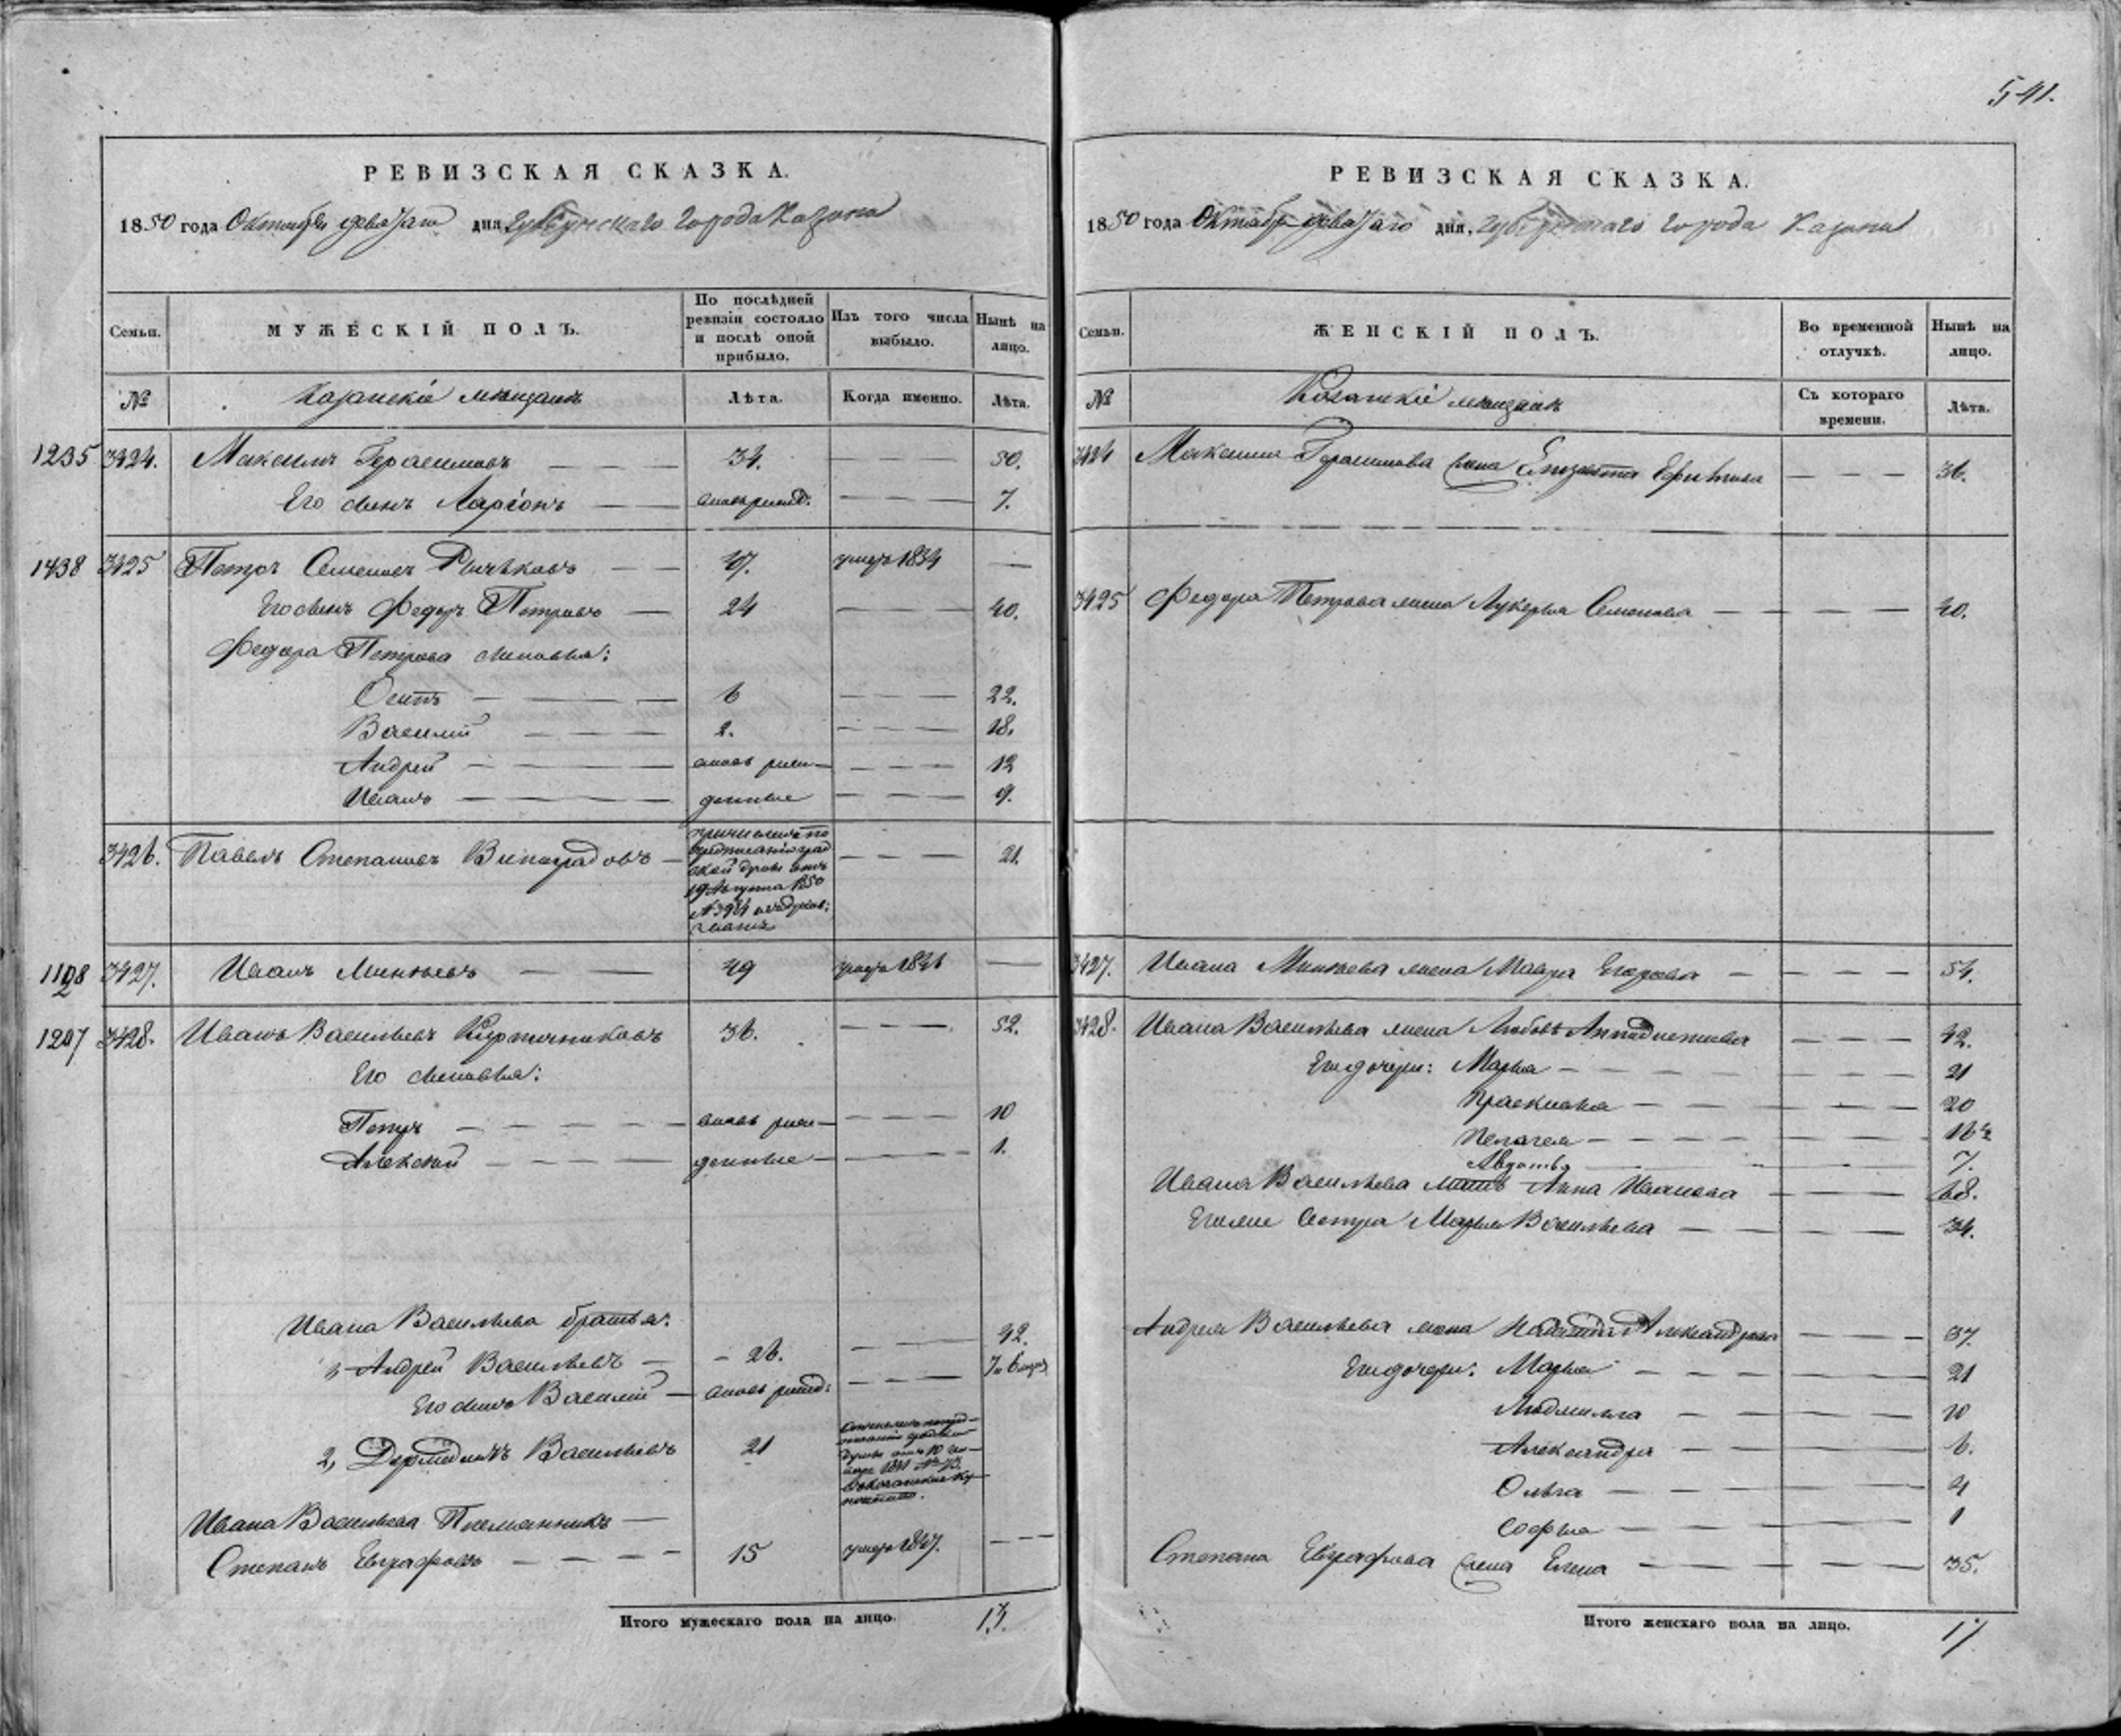 541.
РЕВИЗСКАЯ СКАЗКА.
1850 года Октября девятаго дня Губернскаго города Казани
Семьи.
МУЖЕСКІЙ ПОЛЪ.
По послѣдней ревизіи состояло и послѣ оной прибыло.
Изъ того числа выбыло.
Нынѣ на лицо.
№
Казанскіе мѣщане
Лѣта.
Когда именно.
Лѣта.
1235 3424. Максимъ Герасимовъ 34. 50.
Его сынъ Ларіонъ вновь рожд. 7.
1438 3425 Петръ Семеновъ Рычковъ 47. умеръ 1834
Его сынъ Федоръ Петровъ 24 40.
Федора Петрова сыновья:
Осипъ 6 22.
Василій 2. 18.
Андрей вновь рож- 12
Иванъ денные 9.
3426. Павелъ Степановъ Виноградовъ 21.
причисленъ по
предписанію град
ской думы отъ
19 Августа 1850
3427. Иванъ Минѣевъ 49 умеръ 1846
1207 3428. Иванъ Васильевъ Кирпичниковъ 36. 52.
Его сыновья:
Петръ вновь рож- 10
Алексѣй денные 1.
Ивана Васильева братья:
Андрей Васильевъ 26. 42.
Его сынъ Василій вновь рожд: 7 и 6 мцов
2, Васильевъ 21
Ивана Васильева Племянникъ
Степанъ Евграфовъ 15 умеръ 1847.
Итого мужескаго пола на лицо. 13.
РЕВИЗСКАЯ СКАЗКА.
1850 года Октября девятаго дня, Губернскаго города Казани
Семьи.
ЖЕНСКІЙ ПОЛЪ.
Во временной отлучкѣ.
Нынѣ на лицо.
№
Казанскіе мѣщане
Съ котораго времени.
Лѣта.
3424 Максима Герасимова жена Елизавета Ефимова 36.
3425 Федора Петрова жена Лукерья Семенова 40.
3427. Ивана Минѣева жена Мавра Егорова 54.
3428. Ивана Васильева жена Любовь 42.
Его дочери: Марья 21
Прасковья 20
Пелагея 16½
Авдотья 7.
Ивана Васильева мать Анна Иванова 68.
Его же сестра Марья Васильева 34.
Андрея Васильева жена Наталья Александрова 37.
Его дочери: Марья 21
Людмилла 10
Александра 6.
Ольга 4
Софья 1
Степана Евграфова жена Елена 35.
Итого женскаго пола на лицо. 17